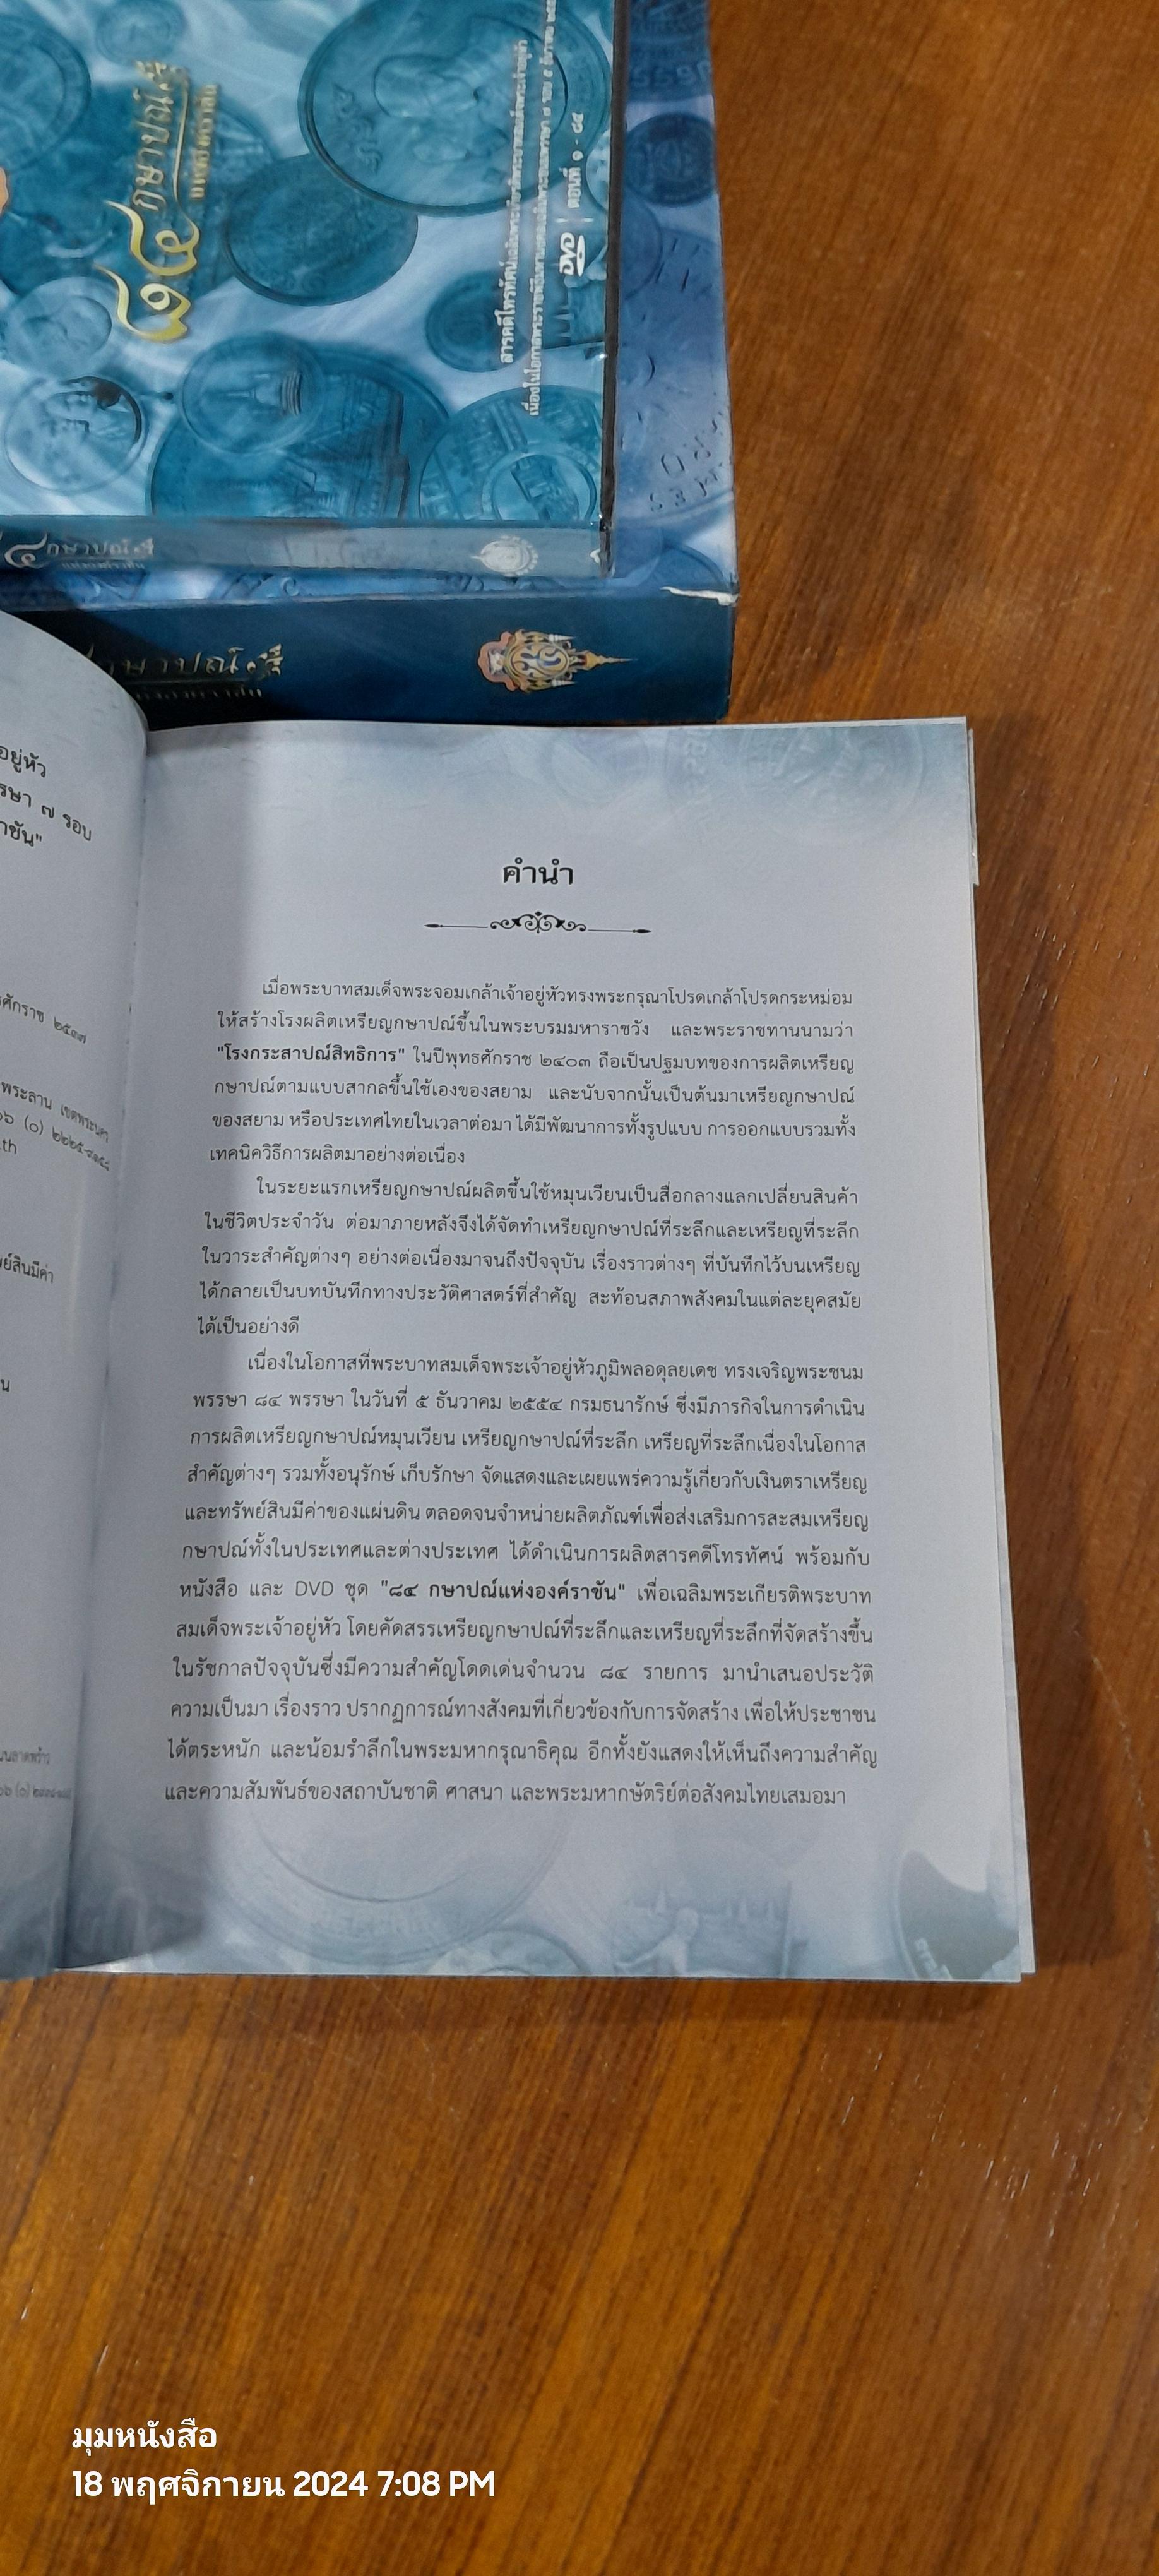 ๘๔ กษาปณ์
แห่งองค์ราชัน
สารคดีโทรทัศน์เฉลิมพระเกียรติพระบาทสมเด็จพระเจ้าอยู่หัว
เนื่องในโอกาสพระราชพิธีมหามงคลเฉลิมพระชนมพรรษา ๗ รอบ ๕ ธันวาคม
DVD ตอนที่ ๑ - ๘๔
๔ กษาปณ์
กษาปณ์
อยู่หัว
รษา ๗ รอบ
าชัน"
ศักราช ๒๕๓๗
พระลาน เขตพระนคร
th
ย์สินมีค่า
น
คำนำ
เมื่อพระบาทสมเด็จพระจอมเกล้าเจ้าอยู่หัวทรงพระกรุณาโปรดเกล้าโปรดกระหม่อม
ให้สร้างโรงผลิตเหรียญกษาปณ์ขึ้นในพระบรมมหาราชวัง และพระราชทานนามว่า
"โรงกระสาปณ์สิทธิการ" ในปีพุทธศักราช ๒๔๐๓ ถือเป็นปฐมบทของการผลิตเหรียญ
กษาปณ์ตามแบบสากลขึ้นใช้เองของสยาม และนับจากนั้นเป็นต้นมาเหรียญกษาปณ์
ของสยาม หรือประเทศไทยในเวลาต่อมา ได้มีพัฒนาการทั้งรูปแบบ การออกแบบรวมทั้ง
เทคนิควิธีการผลิตมาอย่างต่อเนื่อง
ในระยะแรกเหรียญกษาปณ์ผลิตขึ้นใช้หมุนเวียนเป็นสื่อกลางแลกเปลี่ยนสินค้า
ในชีวิตประจำวัน ต่อมาภายหลังจึงได้จัดทำเหรียญกษาปณ์ที่ระลึกและเหรียญที่ระลึก
ในวาระสำคัญต่างๆ อย่างต่อเนื่องมาจนถึงปัจจุบัน เรื่องราวต่างๆ ที่บันทึกไว้บนเหรียญ
ได้กลายเป็นบทบันทึกทางประวัติศาสตร์ที่สำคัญ สะท้อนสภาพสังคมในแต่ละยุคสมัย
ได้เป็นอย่างดี
เนื่องในโอกาสที่พระบาทสมเด็จพระเจ้าอยู่หัวภูมิพลอดุลยเดช ทรงเจริญพระชนม
พรรษา ๘๔ พรรษา ในวันที่ ๕ ธันวาคม ๒๕๕๔ กรมธนารักษ์ ซึ่งมีภารกิจในการดำเนิน
การผลิตเหรียญกษาปณ์หมุนเวียน เหรียญกษาปณ์ที่ระลึก เหรียญที่ระลึกเนื่องในโอกาส
สำคัญต่างๆ รวมทั้งอนุรักษ์ เก็บรักษา จัดแสดงและเผยแพร่ความรู้เกี่ยวกับเงินตราเหรียญ
และทรัพย์สินมีค่าของแผ่นดิน ตลอดจนจำหน่ายผลิตภัณฑ์เพื่อส่งเสริมการสะสมเหรียญ
กษาปณ์ทั้งในประเทศและต่างประเทศ ได้ดำเนินการผลิตสารคดีโทรทัศน์ พร้อมกับ
หนังสือ และ DVD ชุด "๘๔ กษาปณ์แห่งองค์ราชัน" เพื่อเฉลิมพระเกียรติพระบาท
สมเด็จพระเจ้าอยู่หัว โดยคัดสรรเหรียญกษาปณ์ที่ระลึกและเหรียญที่ระลึกที่จัดสร้างขึ้น
ในรัชกาลปัจจุบันซึ่งมีความสำคัญโดดเด่นจำนวน ๘๔ รายการ มานำเสนอประวัติ
ความเป็นมา เรื่องราว ปรากฏการณ์ทางสังคมที่เกี่ยวข้องกับการจัดสร้าง เพื่อให้ประชาชน
ได้ตระหนัก และน้อมรำลึกในพระมหากรุณาธิคุณ อีกทั้งยังแสดงให้เห็นถึงความสำคัญ
และความสัมพันธ์ของสถาบันชาติ ศาสนา และพระมหากษัตริย์ต่อสังคมไทยเสมอมา
มุมหนังสือ
18 พฤศจิกายน 2024 7:08 PM